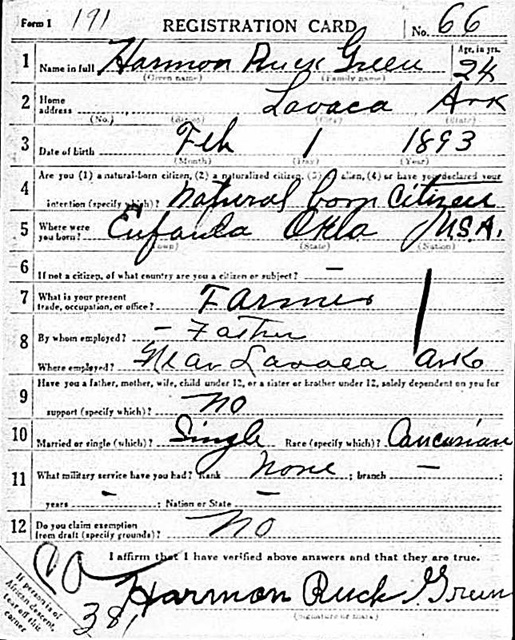 Form 1 191 REGISTRATION CARD No. 66
1 Name in full Harmon Ruck Green Age, in yrs. 24
(Given name) (Family name)
2 Home address Lavaca Ark
(No.) (Street) (City) (State)
3 Date of birth Feb 1 1893
(Month) (Day) (Year)
Are you (1) a natural-born citizen, (2) a naturalized citizen, (3) an alien, (4) or have you declared your
4 intention (specify which)? Natural born Citizen
5 Where were you born? Eufaula Okla U.S.A.
(Town) (State) (Nation)
6 If not a citizen, of what country are you a citizen or subject? –
7 What is your present trade, occupation, or office? Farmer
8 By whom employed? – Father
Where employed? Near Lavaca Ark
9 Have you a father, mother, wife, child under 12, or a sister or brother under 12, solely dependent on you for
support (specify which)? No
10 Married or single (which)? Single Race (specify which)? Caucasian
11 What military service have you had? Rank None ; branch – ;
years – ; Nation or State –
12 Do you claim exemption from draft (specify grounds)? No
I affirm that I have verified above answers and that they are true.
If person is of
African descent,
tear off this
corner
38
Harmon Ruck Green
(Signature or mark)